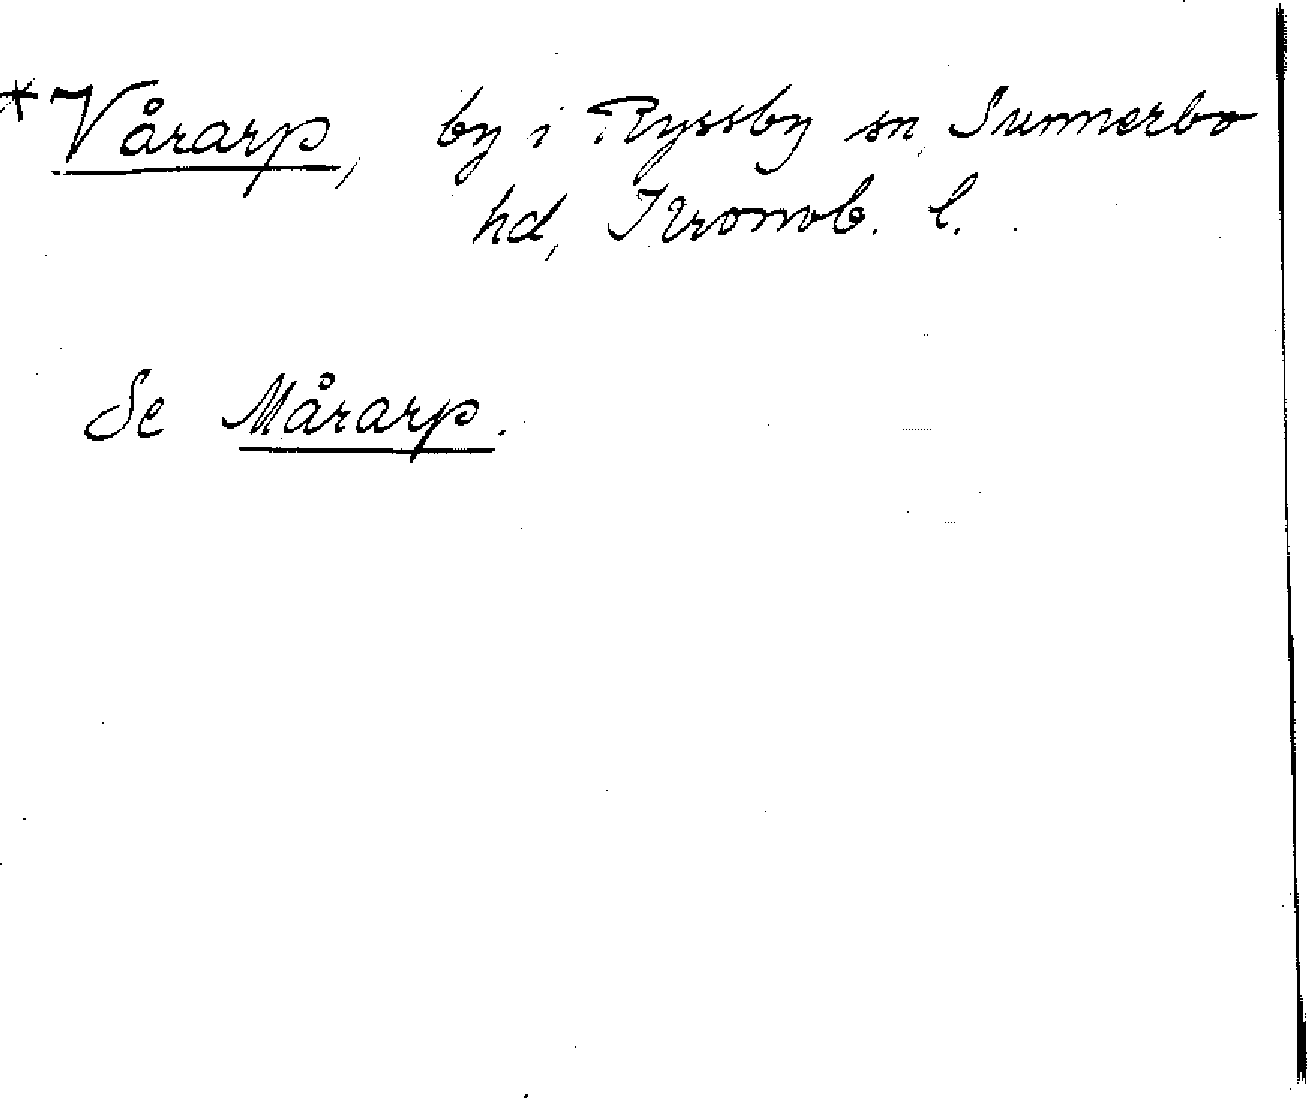 *Vårarp, by i Ryssby sn, Sunnerbo
hd, Kronob. l.
Se Mårarp.